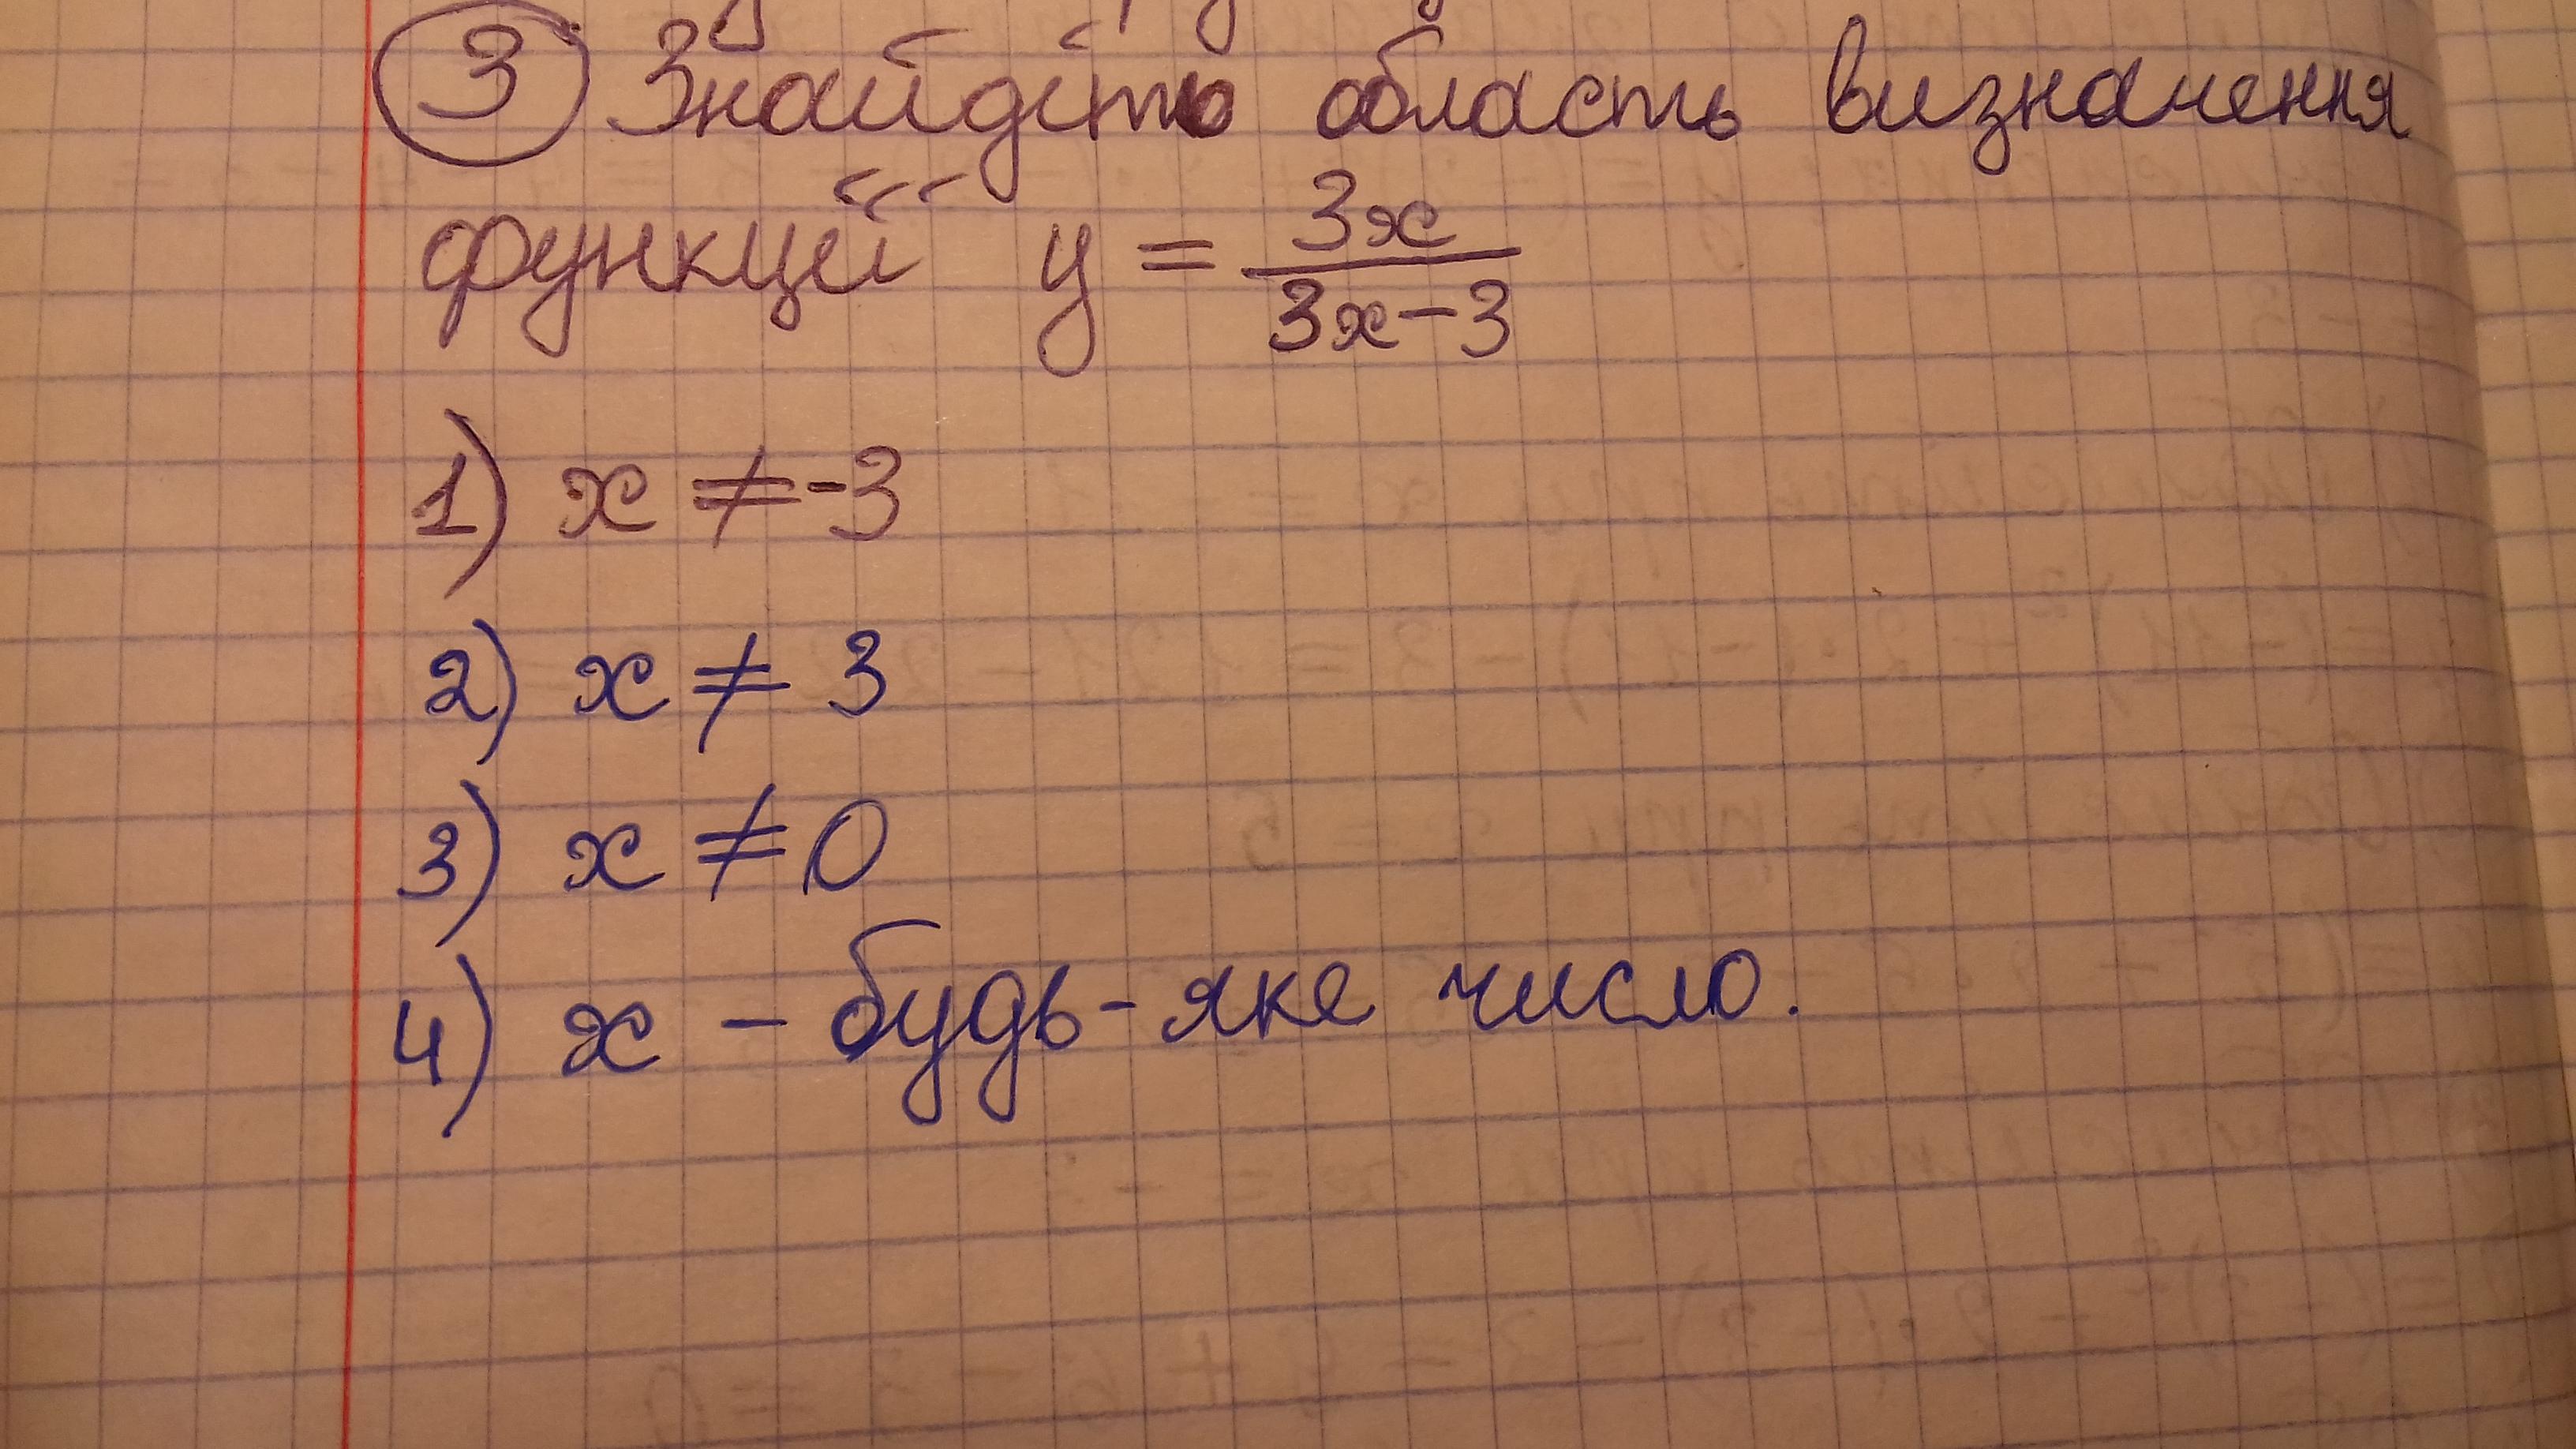 3 Знайдіть область визначення
функції y = 3x/(3x-3)
1) x ≠ -3
2) x ≠ 3
3) x ≠ 0
4) x - будь-яке число.